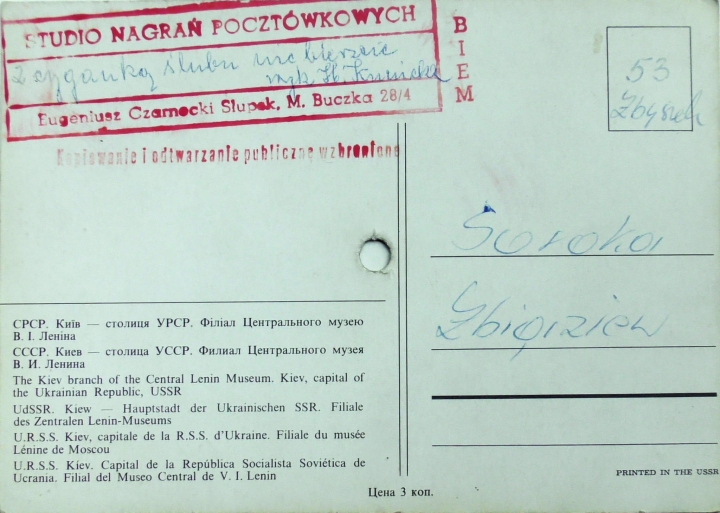 STUDIO NAGRAŃ POCZTÓWKOWYCH
Z cyganką ślubu nie bierzcie
wyk. H. Kunicka
Eugeniusz Czarnecki Słupsk, M. Buczka 28/4
BIEM
Kopiowanie i odtwarzanie publiczne wzbronione
53
Zbyszek
Soroka
Zbigniew
СРСР. Київ — столиця УРСР. Філіал Центрального музею
В. І. Леніна
СССР. Киев — столица УССР. Филиал Центрального музея
В. И. Ленина
The Kiev branch of the Central Lenin Museum. Kiev, capital of
the Ukrainian Republic, USSR
UdSSR. Kiew — Hauptstadt der Ukrainischen SSR. Filiale
des Zentralen Lenin-Museums
U.R.S.S. Kiev, capitale de la R.S.S. d'Ukraine. Filiale du musée
Lénine de Moscou
U.R.S.S. Kiev. Capital de la República Socialista Soviética de
Ucrania. Filial del Museo Central de V. I. Lenin
Цена 3 коп.
PRINTED IN THE USSR